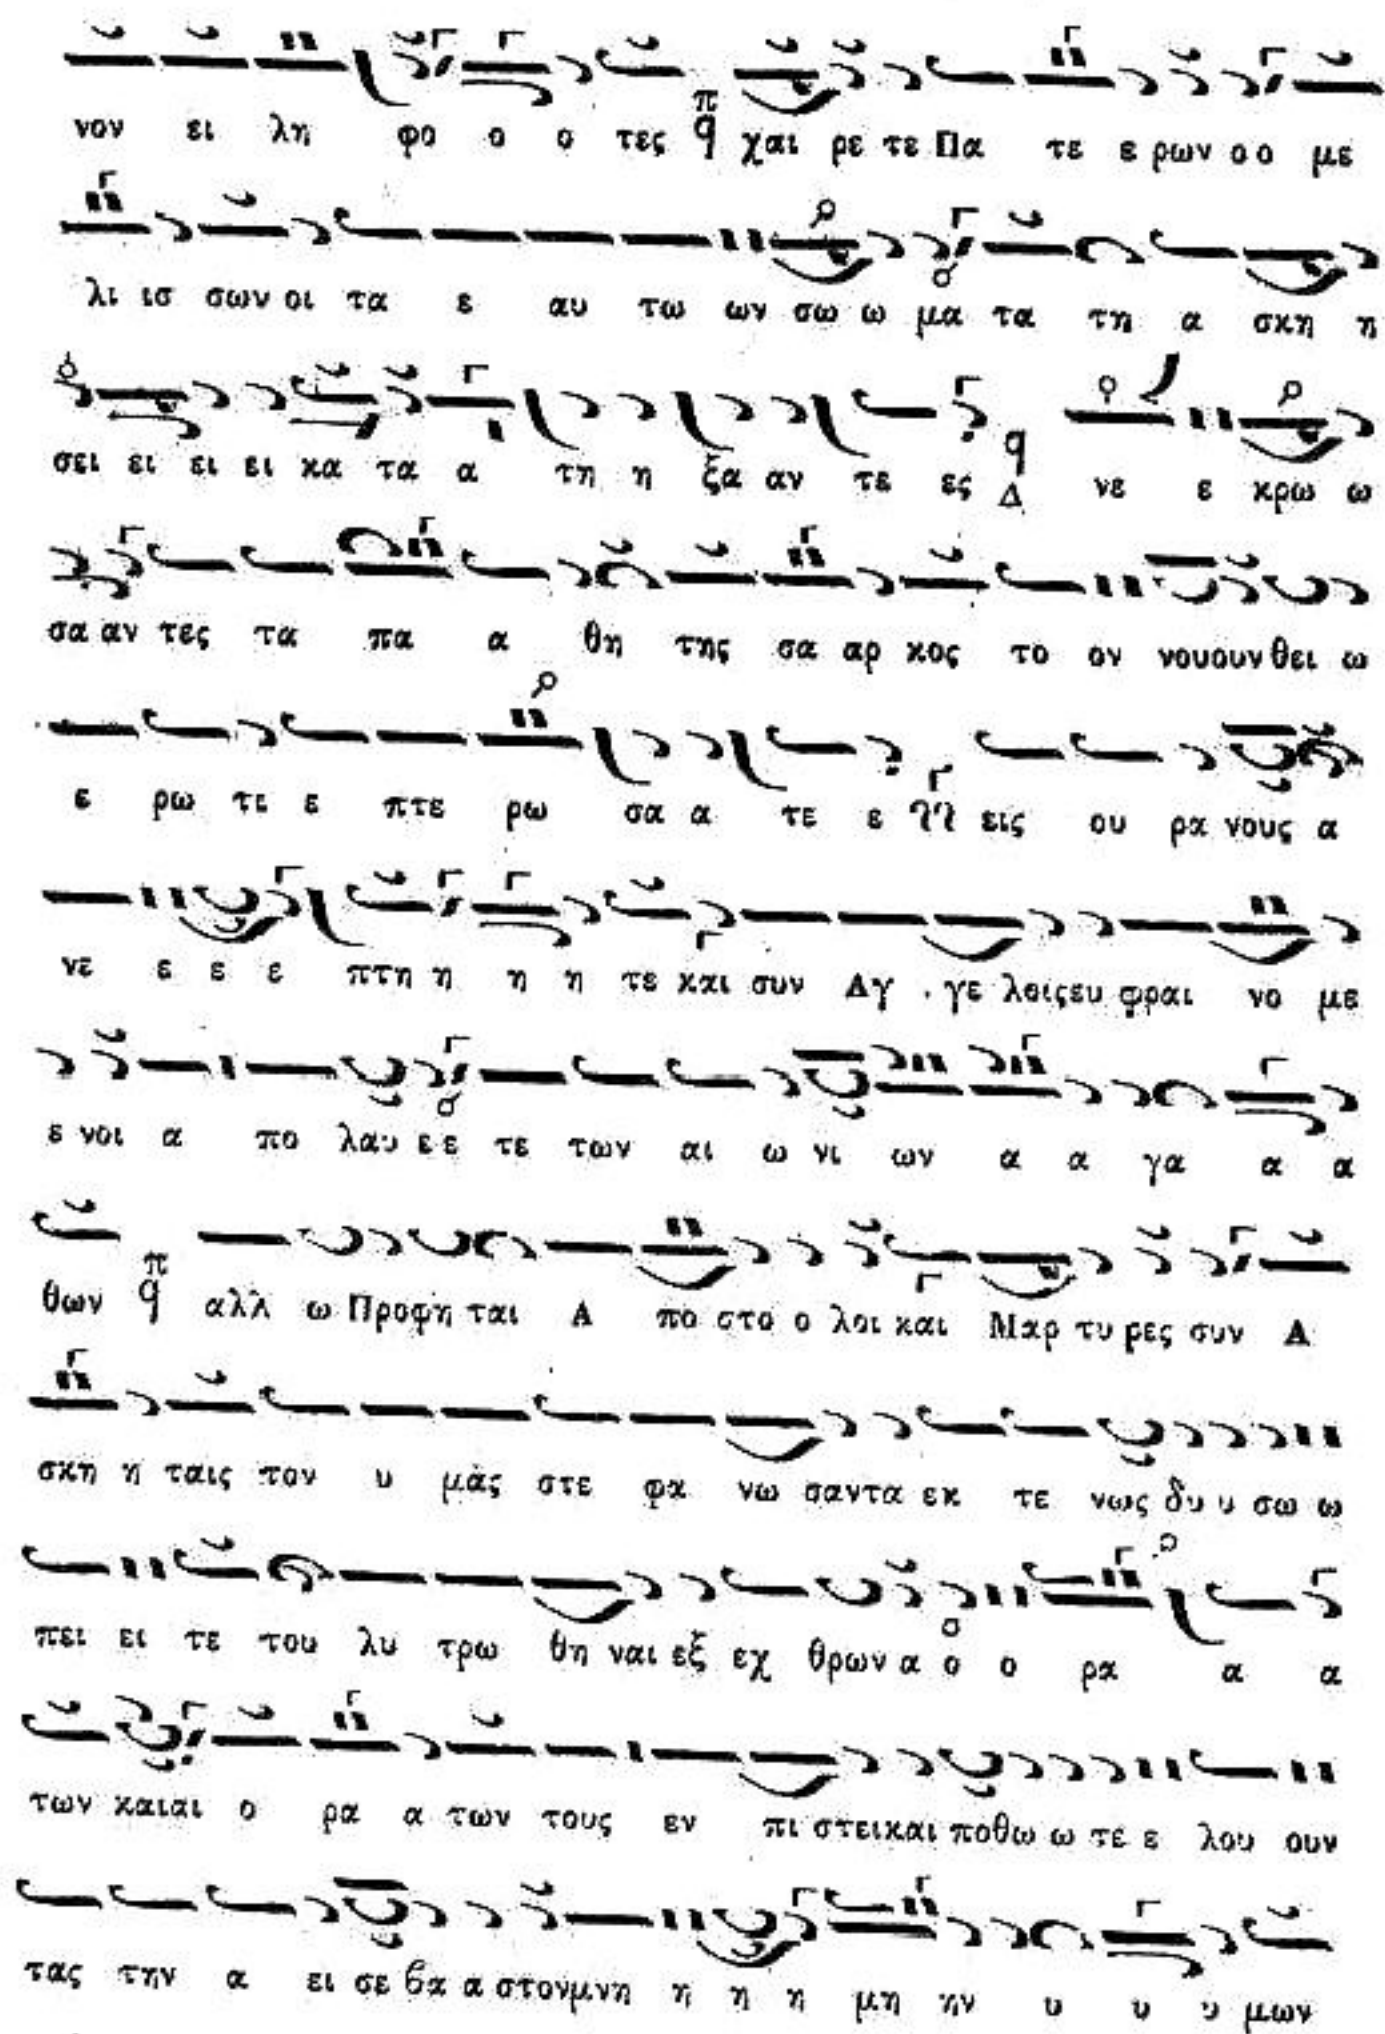 νον ει λη φο ο ο τες π q χαι ρε τε Πα τε ε ρων ο ο με
λι ισ σων οι τα ε αυ τω ων σω ω μα τα τη α σκη η
σει ει ει ει κα τα α τη η ξα αν τε ες q Δ νε ε κρω ω
σα αν τες τα πα α θη της σα αρ κος το ον νουουν θει ω
ε ρω τι ε πτε ρω σα α τε ε εις ου ρα νους α
νε ε ε ε πτη η η η τε και συν Αγ γε λοις ευ φραι νο με
ε νοι α πο λαυ ε ε τε των αι ω νι ων α α γα α α
θων π q αλλ ω Προφη ται Α πο στο ο λοι και Μαρ τυ ρες συν Α
σκη η ταις τον υ μάς στε φα νω σαντα εκ τε νως δυ υ σω ω
πει ει τε του λυ τρω θη ναι εξ εχ θρων α ο ο ρα α α
των καιαι ο ρα α των τους εν πι στει και ποθω ω τε ε λου ουν
τας την α ει σε βα α στον μνη η η η μη ην υ υ υ μων